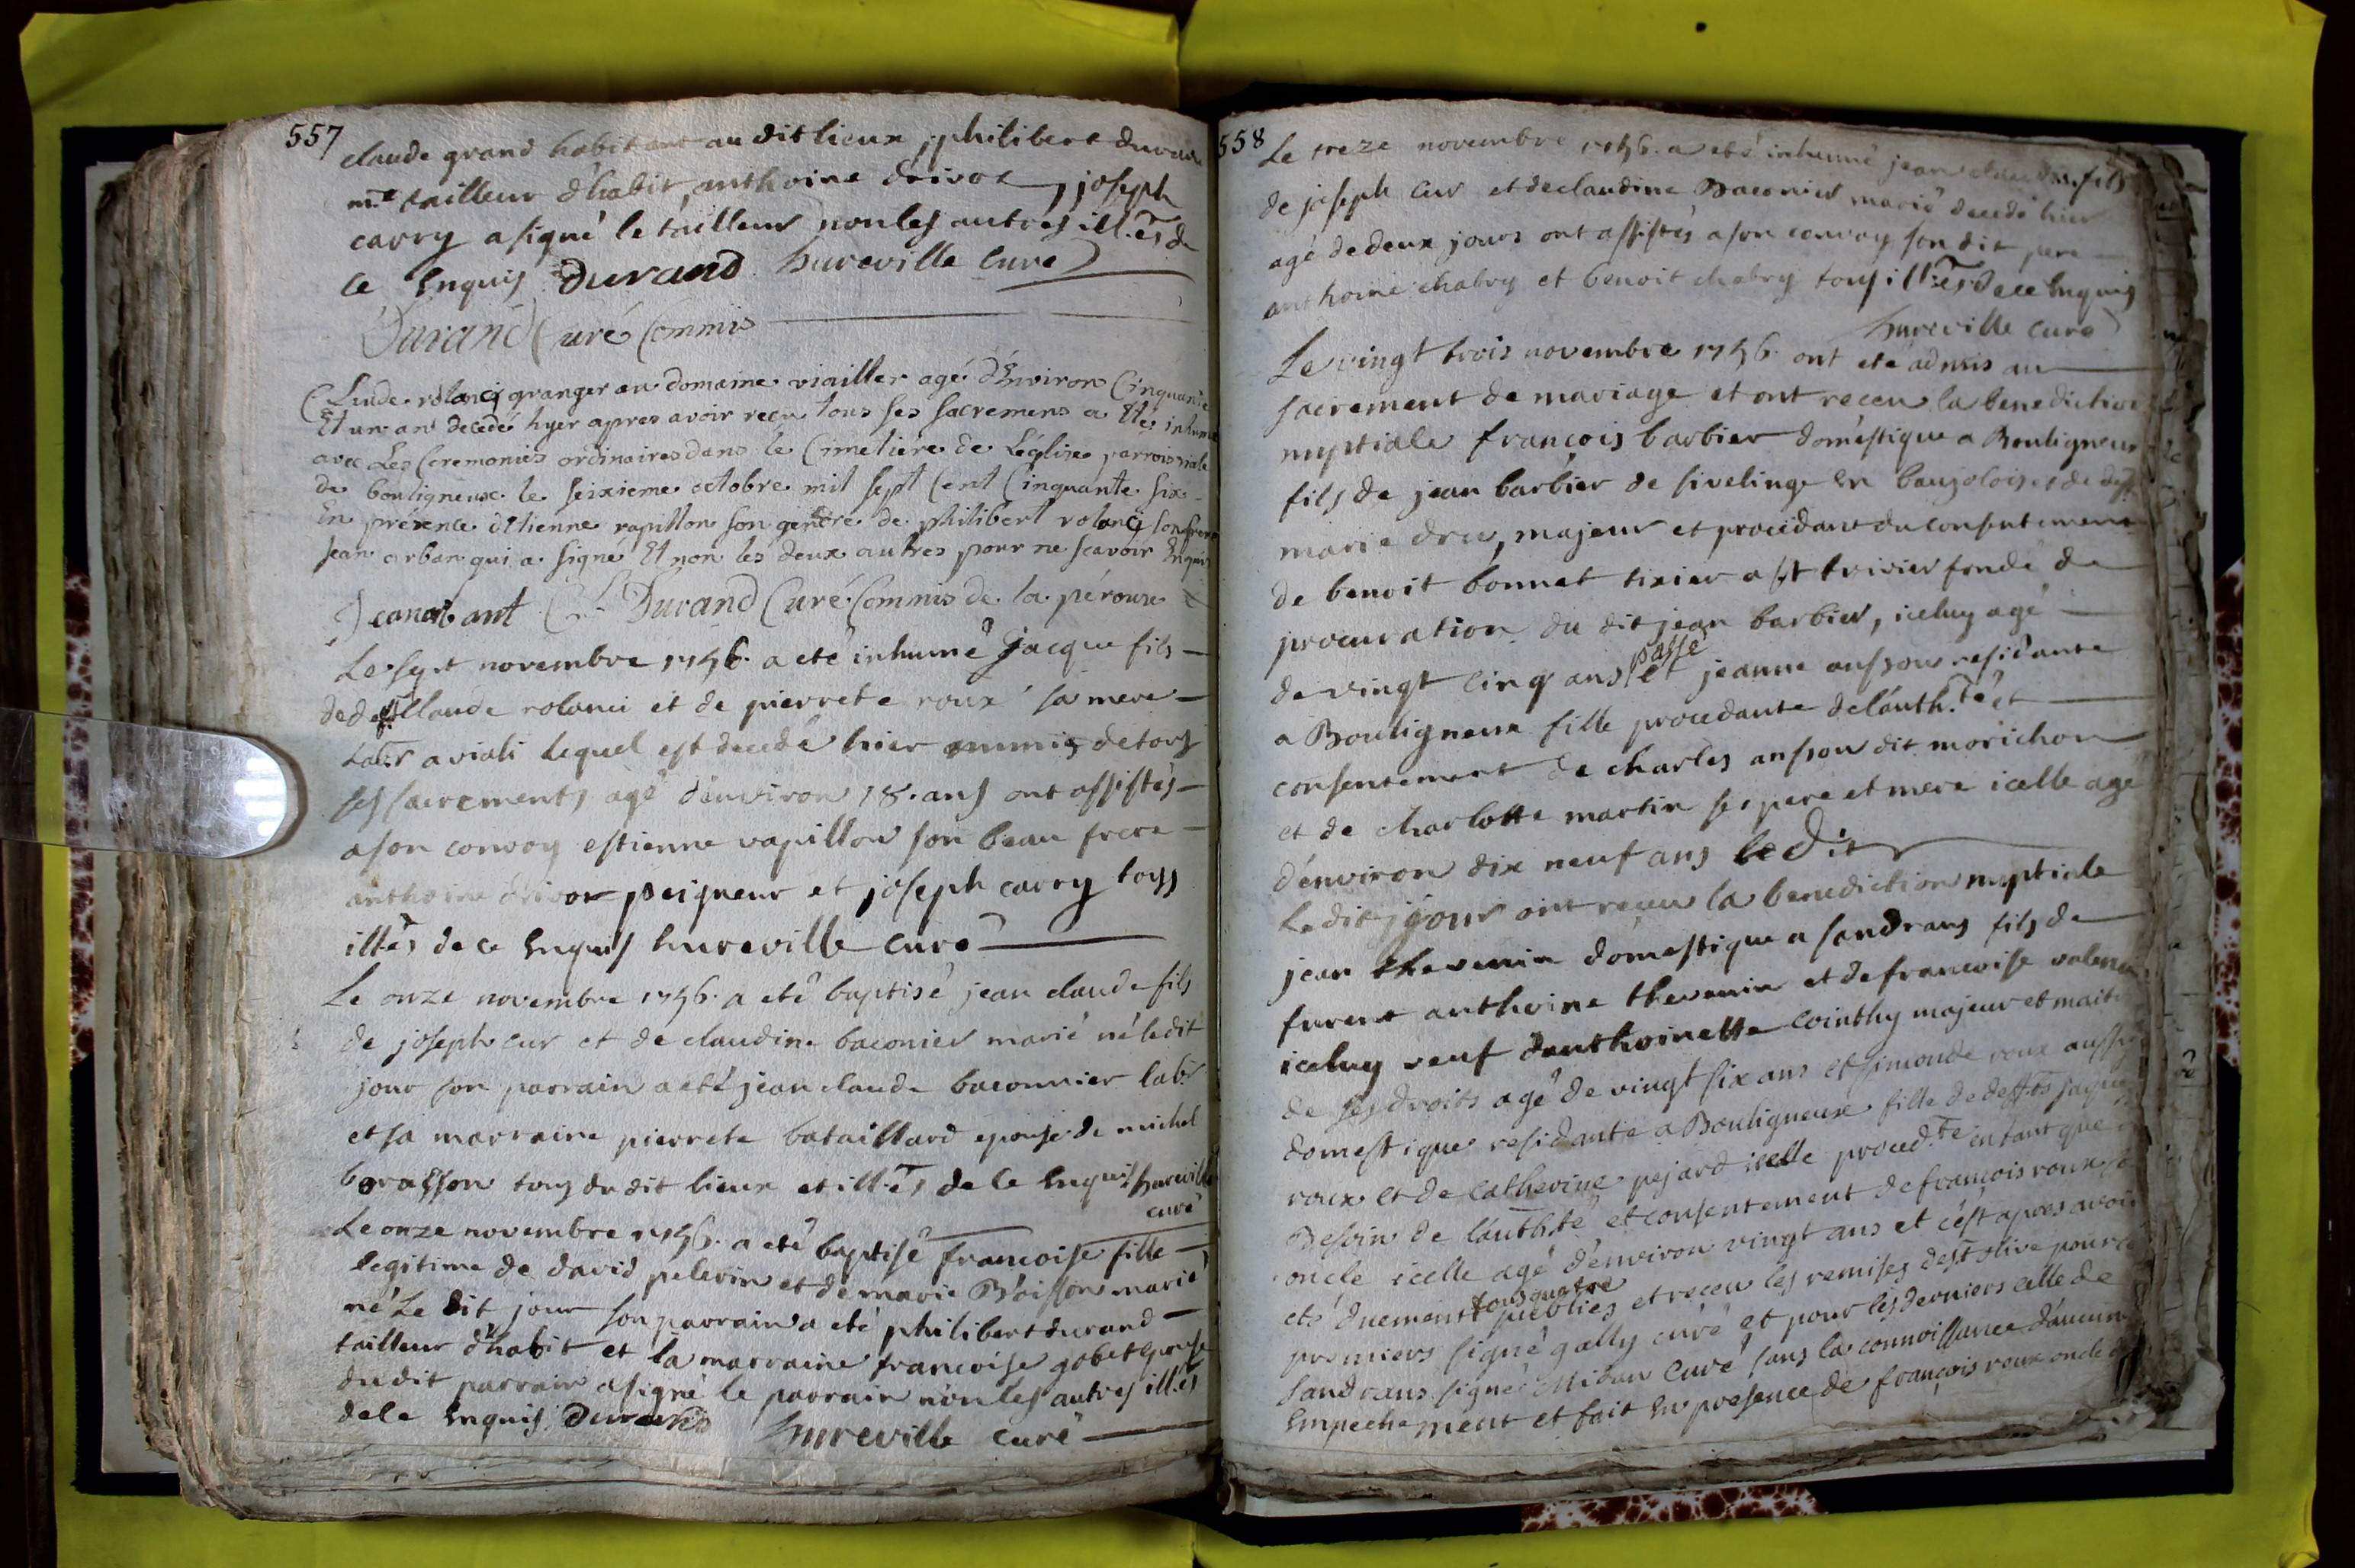 557
claude grand habitant au dit lieux, philibert durand
m.e tailleur d'habit, anthoine drivon, joseph
carry a signé le tailleur non les autres ill.és de
ce Enquis Durand hureville Curé
Durand Curé Commis
Claude rolanci granger au domaine viailler agé d'Environ Cinquante
Et un an decedé hyer apres avoir reçu tous ses sacremens a Etés inhumé
avec Les Ceremonies ordinaires dans le Cimetiere de L'église parroissiale
de bouligneux le seixieme octobre mil sept Cent Cinquante six
En présence d'Etienne rapillon son gendre de philibert rolanci son frere
jean orban qui a signé Et non les deux autres pour ne scavoir Enquis
Durand Curé Commis de la pérouse
Le sept novembre 1756. a eté inhumé jacque fils
de deff.t Claude rolanci et de pierrete roux sa mere
lab.r a viali lequel est decedé hier munis de tous
ses sacrements agé d'environ 18. ans ont assistés
a son convoy estienne rapillon son beau frere
anthoine drivon peigneur et joseph carry tous
ill.és de ce Enquis hureville curé
Le onze novembre 1756. a eté baptisé jean claude fils
de joseph cur et de claudine baconier marié né le dit
jour son parrain a eté jean claude baconnier lab.r
et sa marraine pierrete bataillard epouse de michel
borasson tous du dit lieux et ill.és de ce Enquis hureville
curé
Le onze novembre 1756. a eté baptisé francoise fille
legitime de david pelerin et de marie Boisson marié
né Le dit jour son parrain a eté philibert durand
tailleur d'habit et la marraine francoise gobet epouse
du dit parrain a signé le parrain non les autres ill.és
de ce Enquis Durand hureville curé
558
Le treze novembre 1756. a eté inhumé jean claude fils
de joseph Cur et de claudine Baconier marié decedé hier
agé de deux jours ont assistés a son convoy son dit pere
anthoine chabry et benoit chabry tous ill.és de ce Enquis
hureville curé
Le vingt trois novembre 1756. ont eté admis au
sacrement de mariage et ont receu la benediction
nuptiale françois barbier doméstique a Bouligneux
fils de jean barbier de sivelinge En baujolois et de deff.te
marie dru, majeur et procedant du consentement
de benoit bonnet tixier a st trivier fondé de
procuration du dit jean barbier, iceluy agé
de vingt cinq ans passé et jeanne ansson residante
a Bouligneux fille procedante de l'auth.té et
consentement de charles ansson dit morichon
et de charlotte martin ses pere et mere icelle agé
d'environ dix neuf ans le dit
Le dit jour ont reçeu la benediction nuptiale
jean thevenin doméstique a sandrans fils de
furent anthoine thevenin et de francoise
iceluy veuf d'anthoinette Cointhy majeur et maitre
de ses droits agé de vingt six ans et simonde roux aussi
domestique residante a Bouligneux fille de deff.ts jaque
roux et de Catherine pejard icelle proced.te en tant que
Besoin de l'auth.té et consentement de françois roux
oncle icelle agé d'environ vingt ans et c'est apres avoir
eté duement tous quatre publiés et receu les remises de st olive pour
premiers signé gally curé et pour les derniers celle de
sandrans signé Midan Curé sans la connoissance d'aucun
Empechement et fait En presence de françois roux oncle